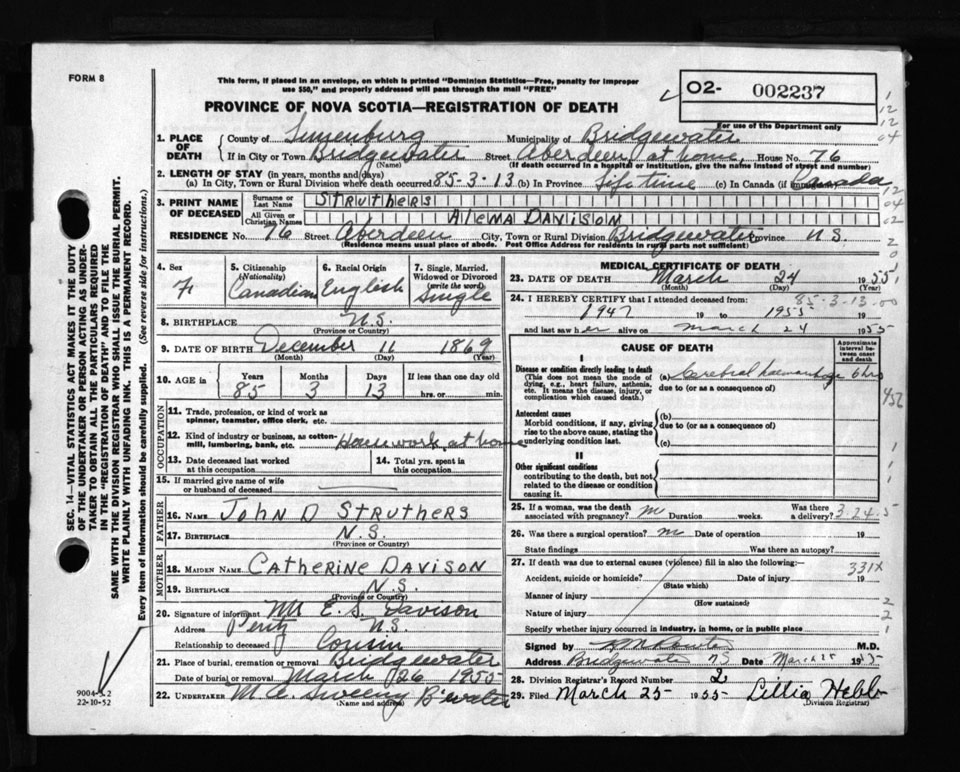 FORM 8
This form, if placed in an envelope, on which is printed "Dominion Statistics—Free, penalty for improper
use $50," and properly addressed will pass through the mail "FREE"
PROVINCE OF NOVA SCOTIA—REGISTRATION OF DEATH
O2- 002237
For use of the Department only
1. PLACE OF DEATH
County of Lunenburg Municipality of Bridgewater
If in City or Town Bridgewater Street Aberdeen, at home, House No. 76
(Name) (If death occurred in a hospital or institution, give the name instead of street and number)
2. LENGTH OF STAY (in years, months and days)
(a) In City, Town or Rural Division where death occurred 85-3-13 (b) In Province Lifetime (c) In Canada (if Canada
3. PRINT NAME OF DECEASED
Surname or Last Name STRUTHERS
All Given or Christian Names DAVISON
RESIDENCE No. 76 Street Aberdeen City, Town or Rural Division Bridgewater Province N.S.
(Residence means usual place of abode. Post Office Address for residents in rural parts not sufficient)
4. Sex
F
5. Citizenship (Nationality)
Canadian
6. Racial Origin
English
7. Single, Married, Widowed or Divorced (write the word)
Single
8. BIRTHPLACE N.S.
(Province or Country)
9. DATE OF BIRTH December 11 1869
(Month) (Day) (Year)
10. AGE in
Years Months Days If less than one day old
85 3 13 hrs. or min.
OCCUPATION
11. Trade, profession, or kind of work as
spinner, teamster, office clerk, etc.
12. Kind of industry or business, as cotton-
mill, lumbering, bank, etc. Housework at home
13. Date deceased last worked
at this occupation
14. Total yrs. spent in
this occupation
15. If married give name of wife
or husband of deceased
FATHER
16. NAME JOHN D STRUTHERS
17. BIRTHPLACE N.S.
(Province or Country)
MOTHER
18. MAIDEN NAME CATHERINE DAVISON
19. BIRTHPLACE N.S.
(Province or Country)
20. Signature of informant E. S. Davison
Address N.S.
Relationship to deceased Cousin
21. Place of burial, cremation or removal Bridgewater
Date of burial or removal March 26 1955
22. UNDERTAKER Sweeny B'water
(Name and address)
MEDICAL CERTIFICATE OF DEATH
23. DATE OF DEATH March 24 1955
(Month) (Day) (Year)
24. I HEREBY CERTIFY that I attended deceased from: 85-3-13-00
1947 19 to 1955 19
and last saw her alive on March 24 1955
CAUSE OF DEATH
Approximate interval between onset and death
I
Disease or condition directly leading to death
(This does not mean the mode of
dying, e.g., heart failure, asthenia,
etc. It means the disease, injury, or
complication which caused death.)
(a) Cerebral haemorrhage 6 hrs
due to (or as a consequence of)
Antecedent causes
Morbid conditions, if any, giving
rise to the above cause, stating the
underlying condition last.
(b)
due to (or as a consequence of)
(c)
II
Other significant conditions
contributing to the death, but not
related to the disease or condition
causing it.
25. If a woman, was the death
associated with pregnancy? Duration weeks. Was there
a delivery? 3-24-5
26. Was there a surgical operation? Date of operation 19
State findings Was there an autopsy?
27. If death was due to external causes (violence) fill in also the following: 331X
Accident, suicide or homicide? Date of injury 19
(State which)
Manner of injury
(How sustained)
Nature of injury
Specify whether injury occurred in industry, in home, or in public place
Signed by M.D.
Address Bridgewater NS Date March 25 1955
28. Division Registrar's Record Number 2
29. Filed March 25 1955 Lillia Hebb
(Division Registrar)
SEC. 14—VITAL STATISTICS ACT MAKES IT THE DUTY
OF THE UNDERTAKER OR PERSON ACTING AS UNDER-
TAKER TO OBTAIN ALL THE PARTICULARS REQUIRED
IN THE "REGISTRATION OF DEATH" AND TO FILE THE
SAME WITH THE DIVISION REGISTRAR WHO SHALL ISSUE THE BURIAL PERMIT.
WRITE PLAINLY WITH UNFADING INK. THIS IS A PERMANENT RECORD.
Every item of information should be carefully supplied. (See reverse side for instructions.)
22-10-52